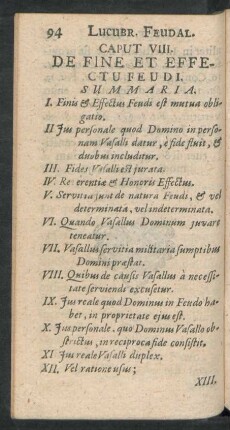 94 LUCUBR. FEUDAL.
CAPUT VIII.
DE FINE ET EFFE-
CTU FEUDI.
SUMMARIA.
I. Finis & Effectus Feudi est mutua obli-
gatio.
II Jus personale quod Domino in perso-
nam Vasalli datur, è fide fluit, &
duobus includitur.
III. Fides Vasalli est jurata.
IV. Reverentiæ & Honoris Effectus.
V. Servitia sunt de natura Feudi, & vel
determinata, vel indeterminata.
VI. Quando Vasallus Dominum juvare
teneatur.
VII. Vasallus servitia militaria sumptibus
Domini præstat.
VIII. Quibus de causis Vasallus à necessi-
tate serviendi excusetur.
IX. Jus reale quod Dominus in Feudo ha-
bet, in proprietate ejus est.
X. Jus personale, quo Dominus Vasallo ob-
strictus, in reciproca fide consistit.
XI Jus reale Vasalli duplex.
XII. Vel ratione usus;
XIII.